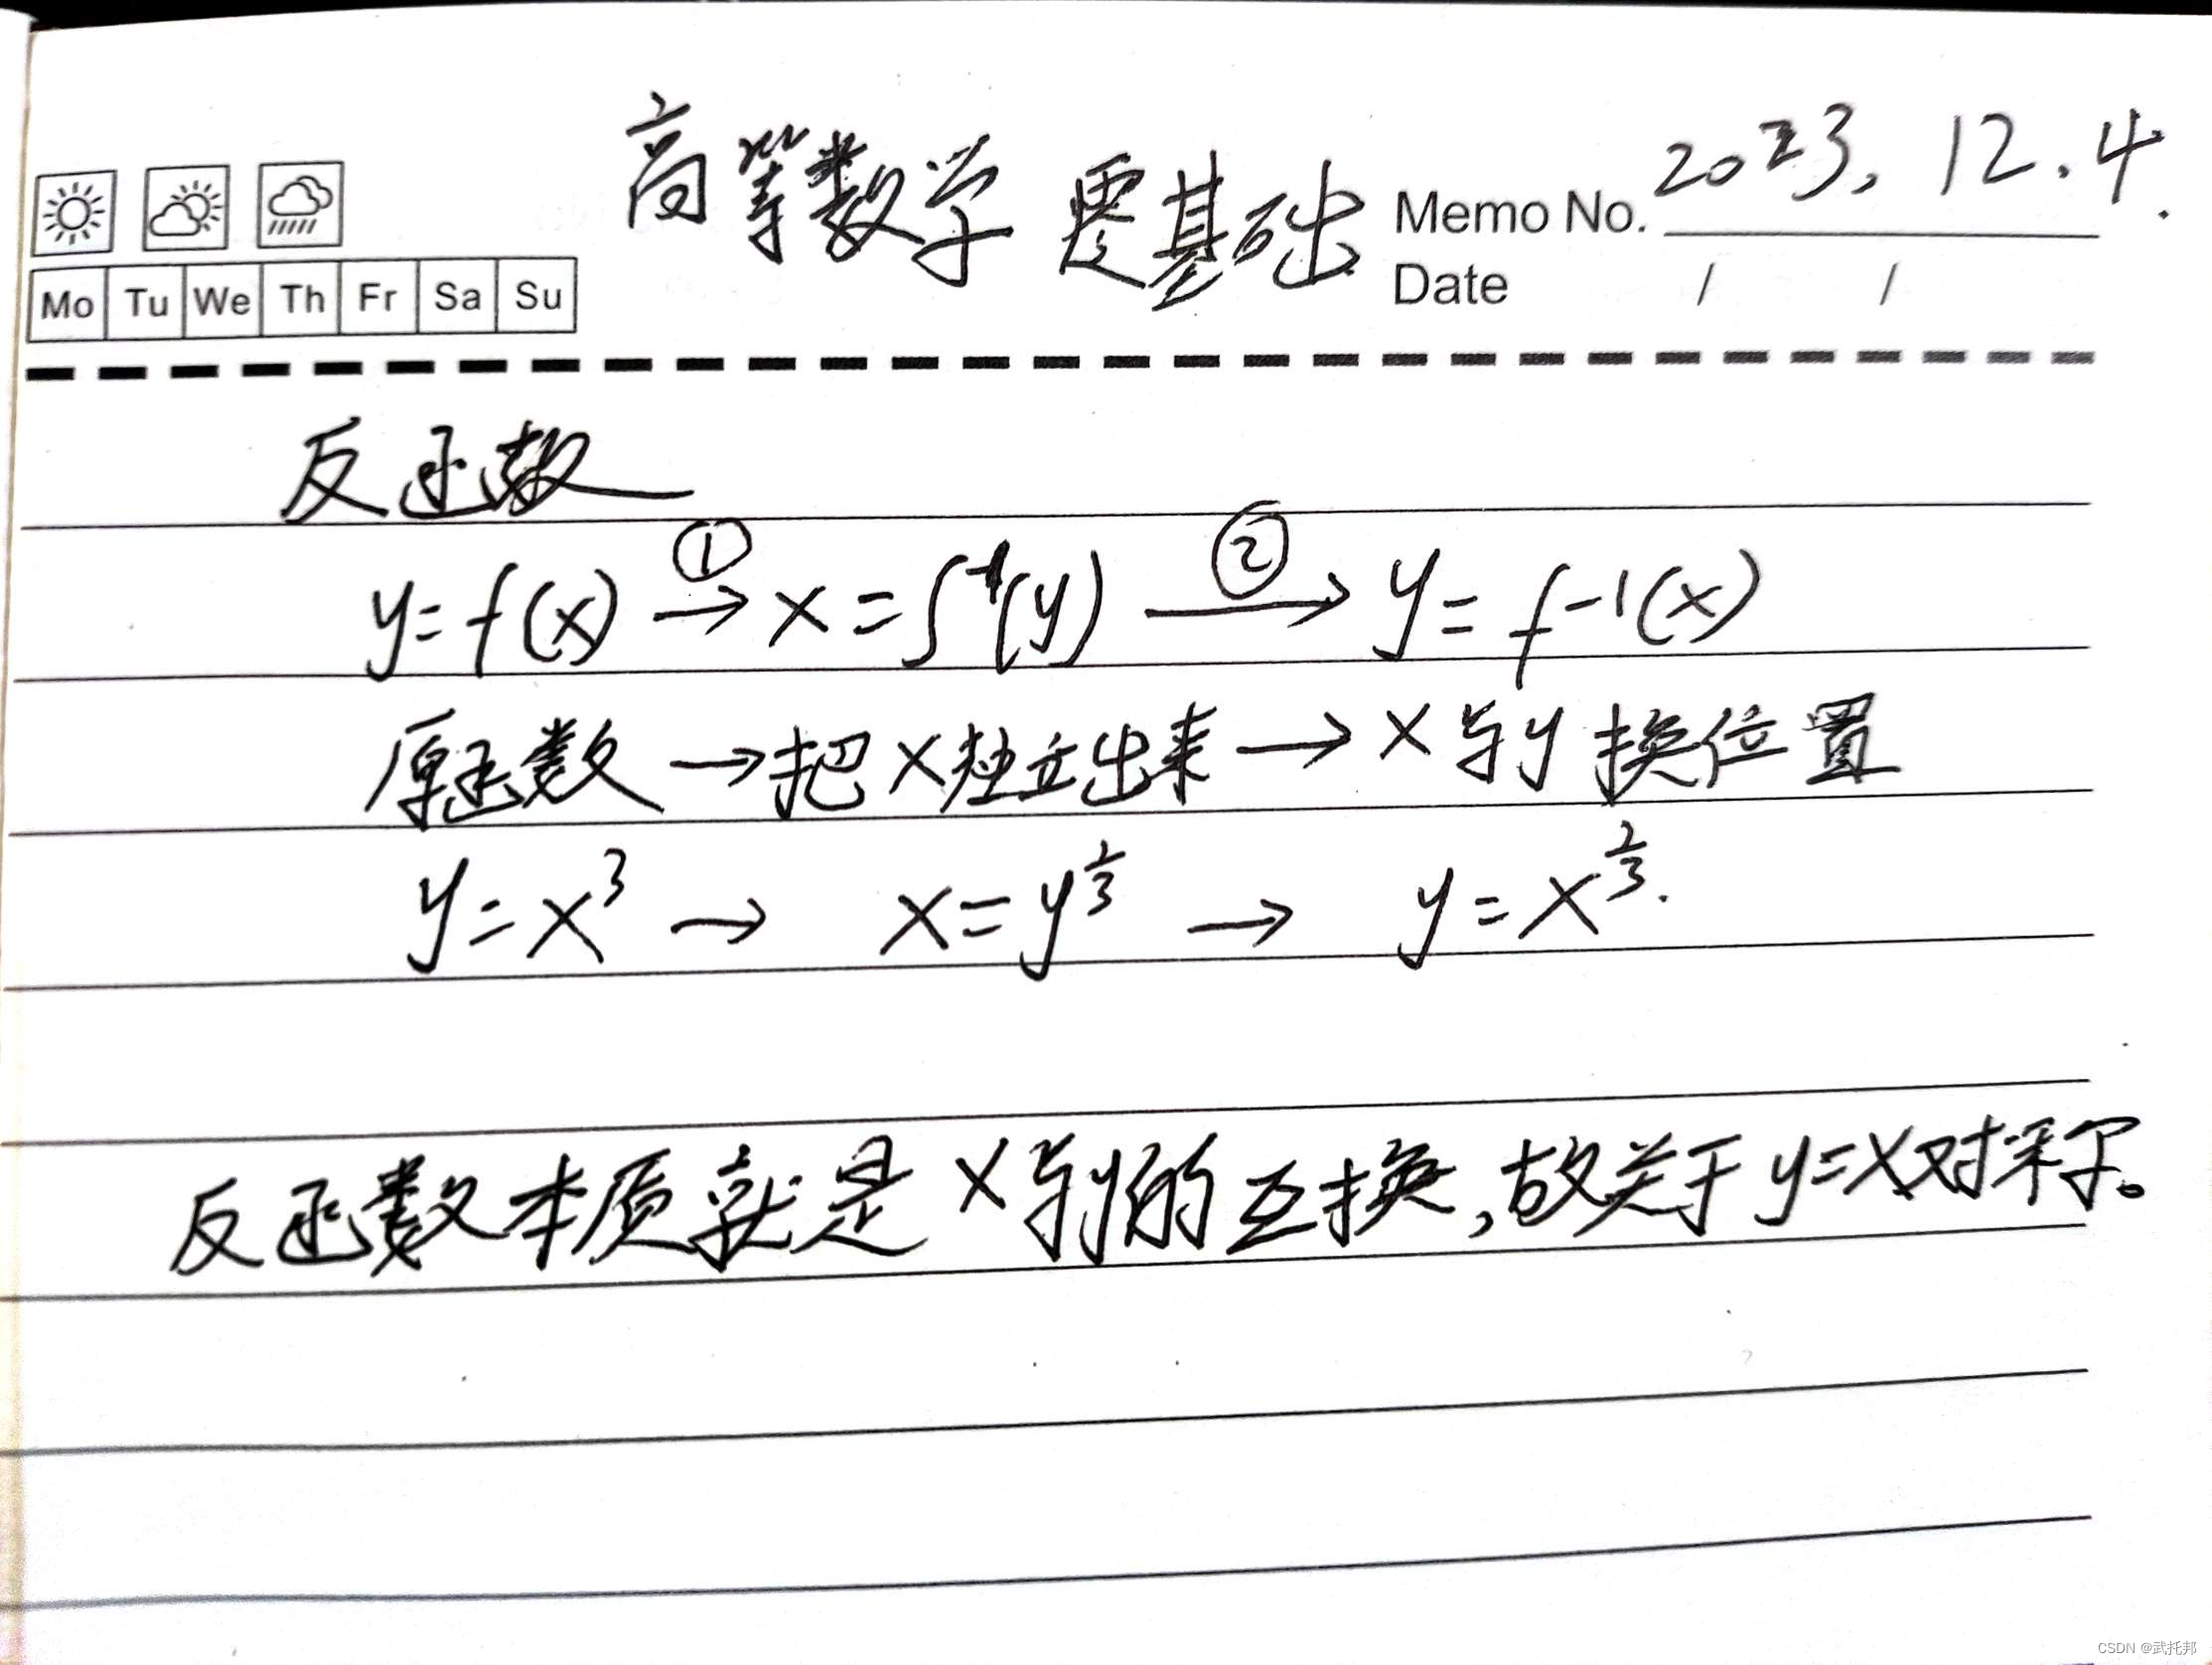 高等数学 零基础
Memo No. 2023.12.4.
Date / /
Mo Tu We Th Fr Sa Su
反函数
y=f(x) ①→ x=f⁻¹(y) ②→ y=f⁻¹(x)
原函数→把x独立出来→x与y换位置
y=x³ → x=y^(1/3) → y=x^(1/3).
反函数本质就是x与y的互换,故关于y=x对称。
CSDN @武托邦